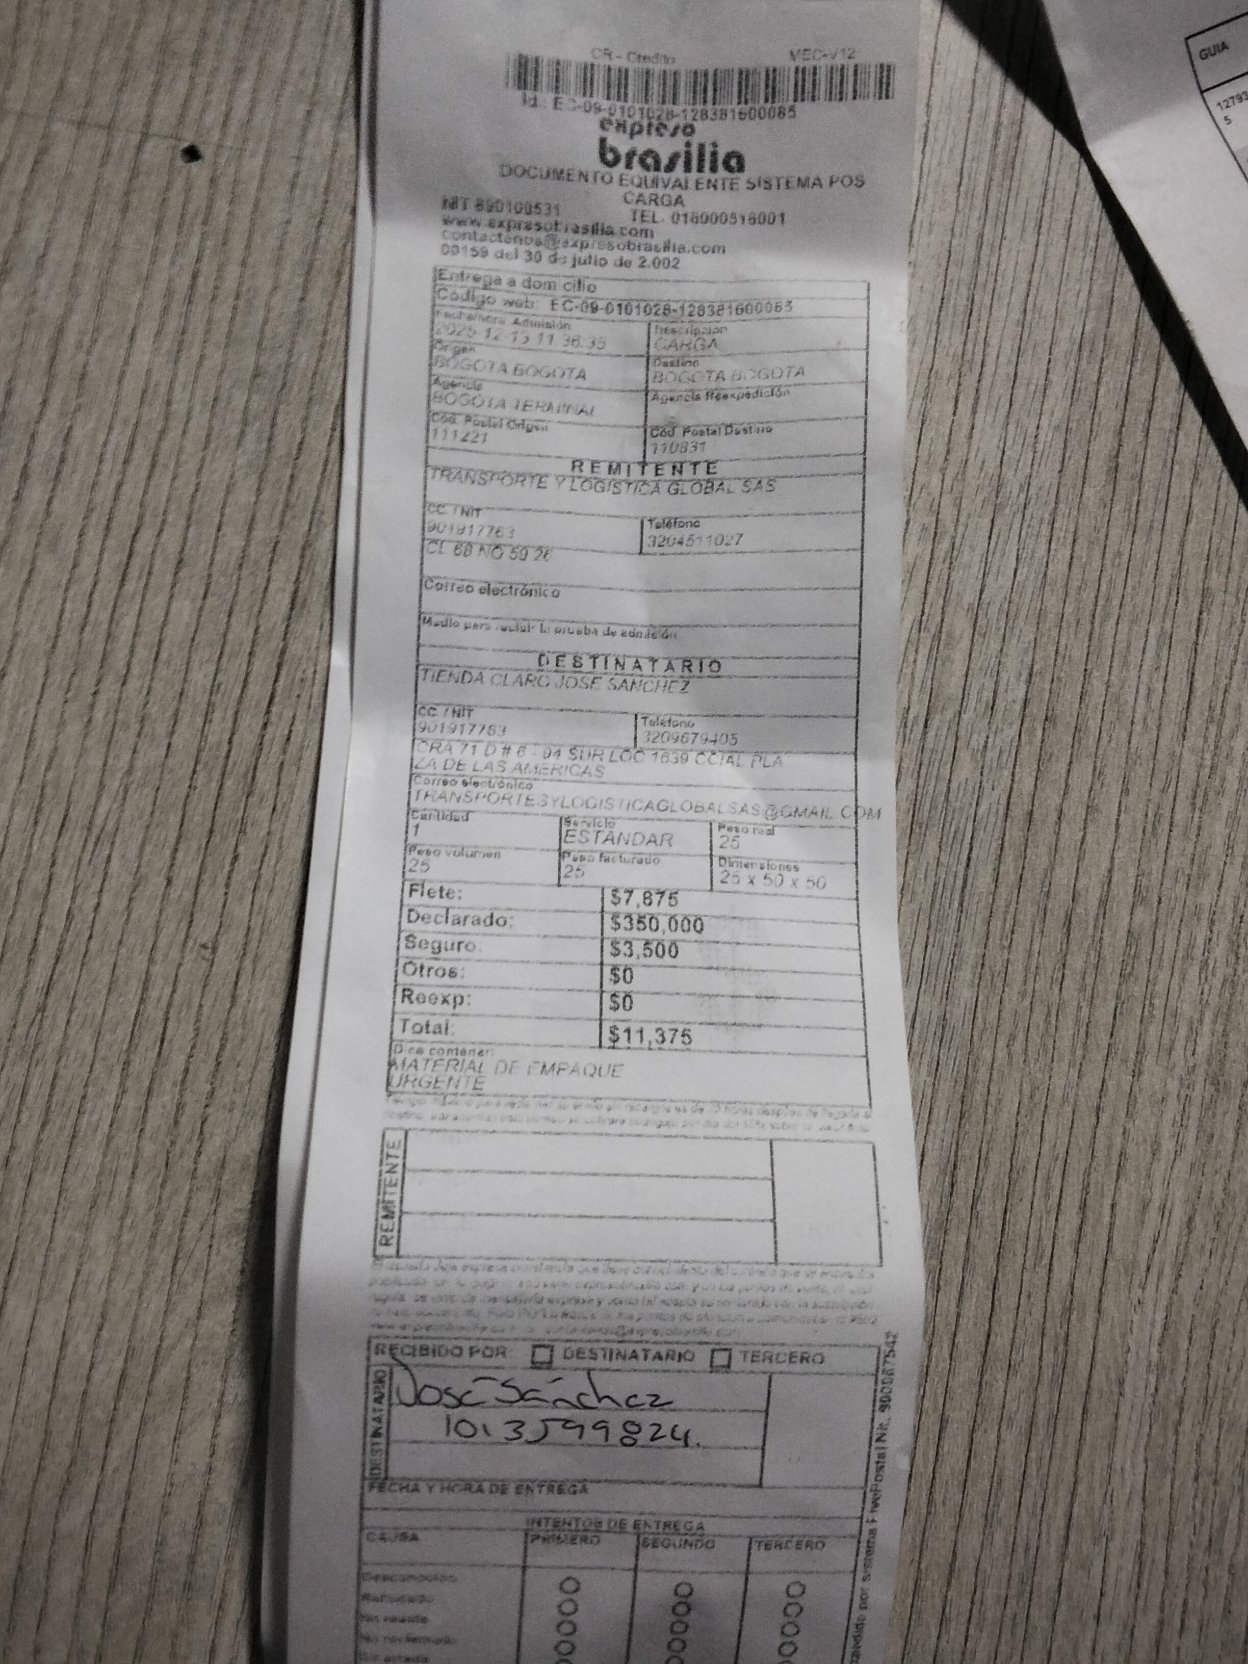 GUIA
12793
5
CR - Credito MEC-V12
Id.: EC-09-0101028-128381600085
expreso
brasilia
DOCUMENTO EQUIVALENTE SISTEMA POS
CARGA
NIT 890100531 TEL. 018000518001
www.expresobrasilia.com
contactenos@expresobrasilia.com
00159 del 30 de julio de 2.002
Entrega a domicilio
Código web: EC-09-0101028-128381600085
Fecha/hora Admisión Descripción
2025-12-15 11:36:35 CARGA
Origen Destino
BOGOTA BOGOTA BOGOTA BOGOTA
Agencia Agencia Reexpedición
BOGOTA TERMINAL
Cód. Postal Origen Cód. Postal Destino
111221 110831
REMITENTE
TRANSPORTE Y LOGISTICA GLOBAL SAS
CC. / NIT Teléfono
901917763 3204511027
CL 68 NO 59 26
Correo electrónico
Medio para recibir la prueba de admisión
DESTINATARIO
TIENDA CLARO JOSE SANCHEZ
CC. / NIT Teléfono
901917763 3209679405
CRA 71 D # 6 - 94 SUR LOC 1639 CCIAL PLA
ZA DE LAS AMERICAS
Correo electrónico
TRANSPORTESYLOGISTICAGLOBALSAS@GMAIL.COM
Cantidad Servicio Peso real
1 ESTANDAR 25
Peso volumen Peso facturado Dimensiones
25 25 25 x 50 x 50
Flete: $7,875
Declarado: $350,000
Seguro: $3,500
Otros: $0
Reexp: $0
Total: $11,375
Dice contener:
MATERIAL DE EMPAQUE
URGENTE
REMITENTE
RECIBIDO POR: DESTINATARIO TERCERO
DESTINATARIO
José Sánchez
1013599824.
FECHA Y HORA DE ENTREGA
INTENTOS DE ENTREGA
CAUSA PRIMERO SEGUNDO TERCERO
Desconocido
Rehusado
No reside
No reclamado